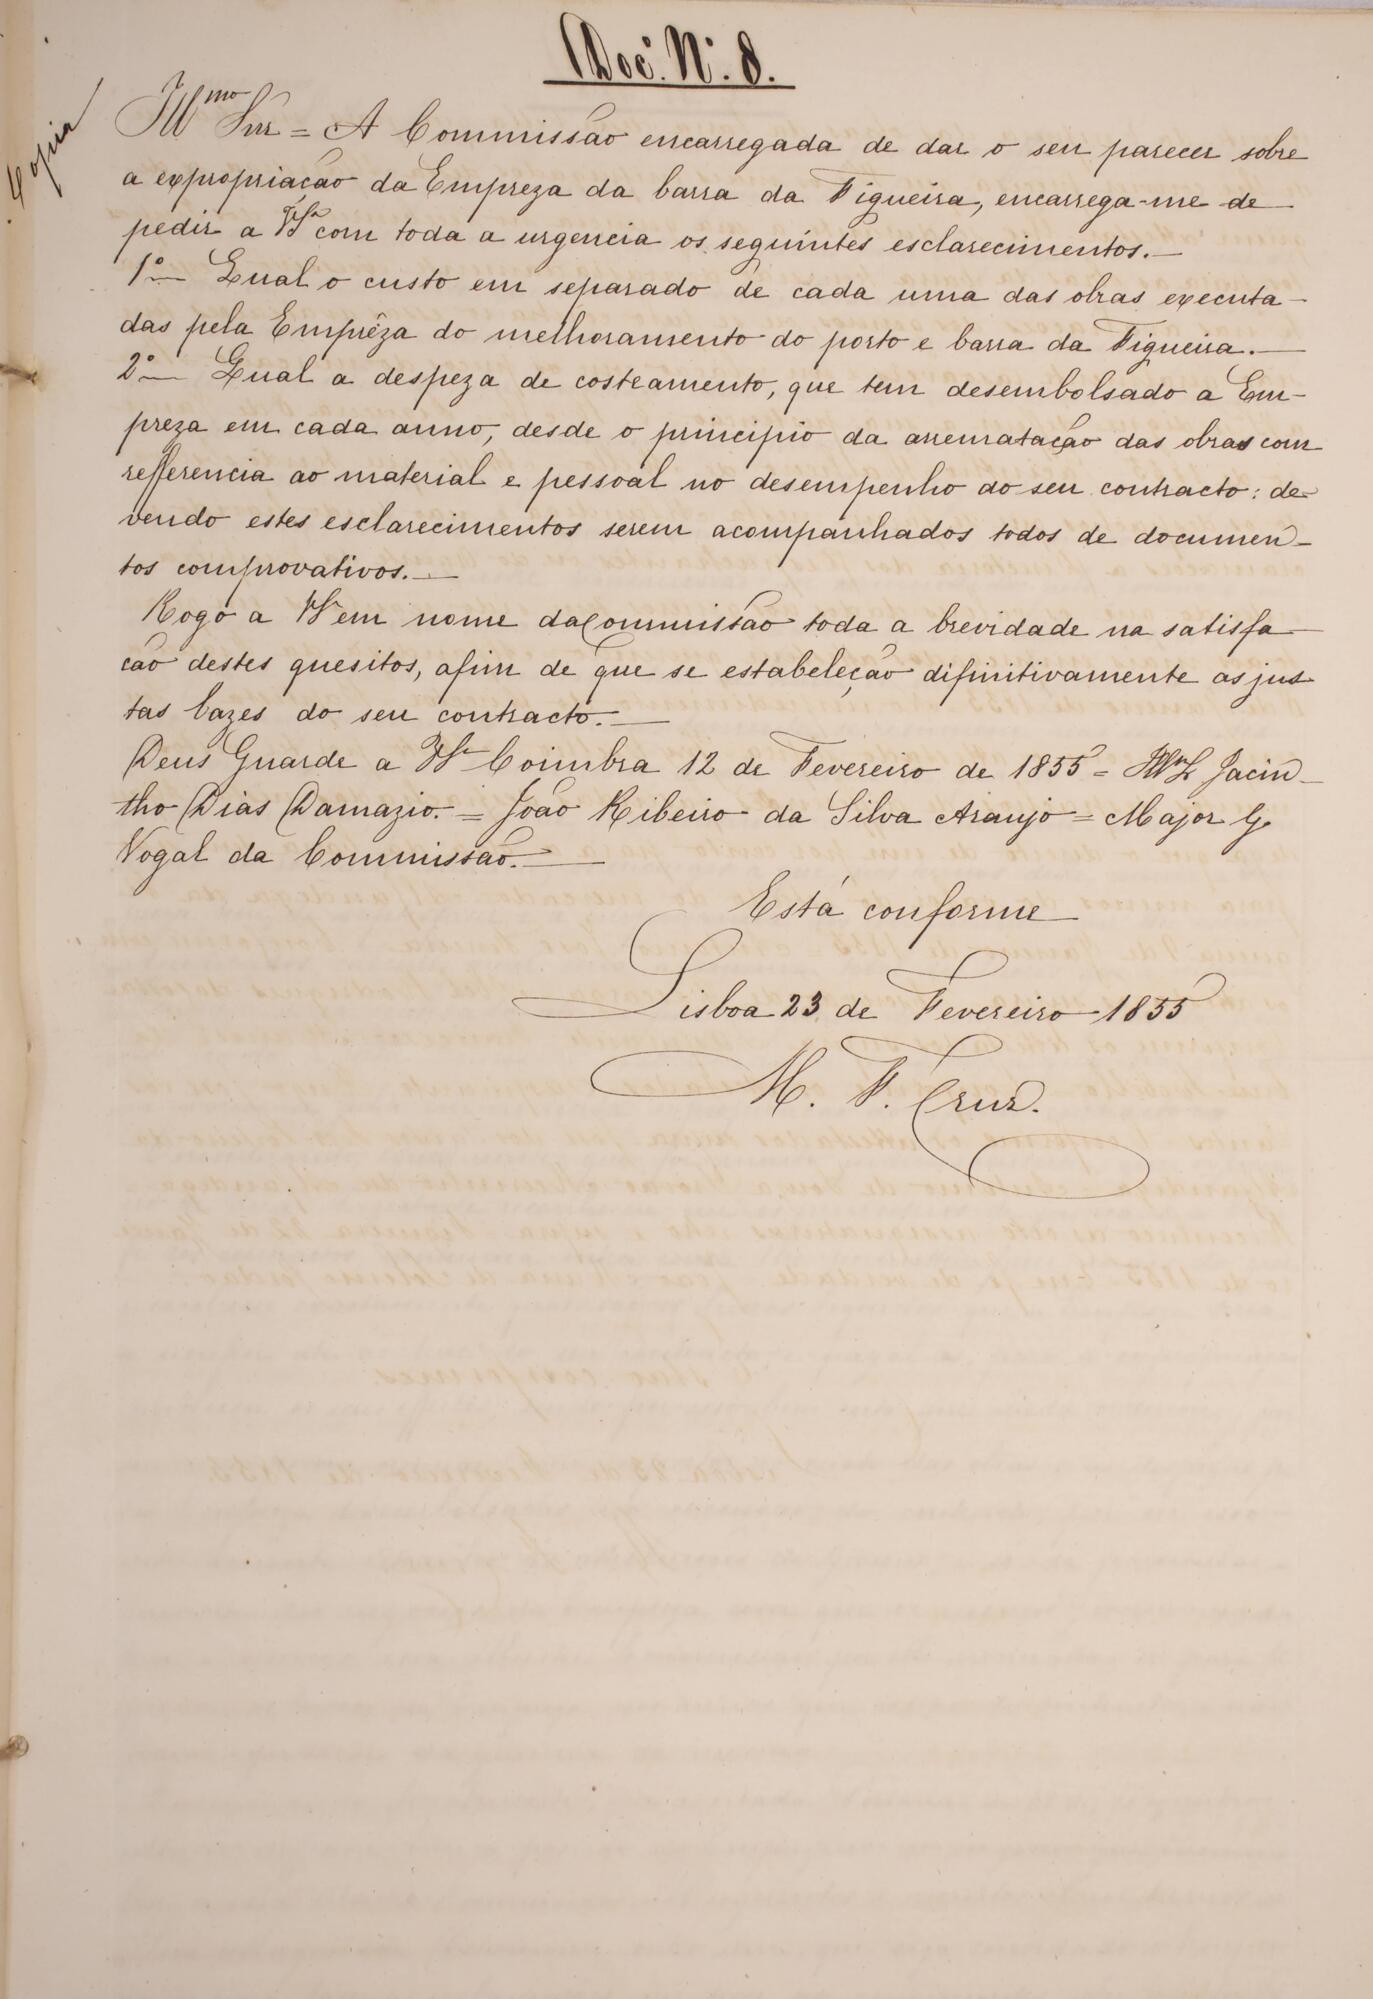 Doc. Nº. 8.
Copia
Illmo Snr = A Commissão encarregada de dar o seu parecer sobre
a expropriacão da Empreza da barra da Figueira, encarrega-me de
pedir a VSª com toda a urgencia os seguintes esclarecimentos.—
1º— Qual o custo em separado de cada uma das obras executa-
das pela Emprêza do melhoramento do porto e barra da Figueira.—
2º— Qual a despeza de costeamento, que tem desembolsado a Em-
preza em cada anno, desde o principio da arrematação das obras com
refferencia ao material e pessoal no desempenho do seu contracto: de-
vendo estes esclarecimentos serem acompanhados todos de documen-
tos comprovativos.—
Rogo a VS em nome da Commissão toda a brevidade na satisfa-
cão destes quesitos, afim de que se estabeleção difinitivamente as jus-
tas bazes do seu contracto.—
Deus Guarde a VSª Coimbra 12 de Fevereiro de 1855 = Jacin-
tho Dias Damazio. = João Ribeiro da Silva Araujo = Major G.
Vogal da Commissão.—
Está conforme
Lisboa 23 de Fevereiro 1855
M. F. Cruz.